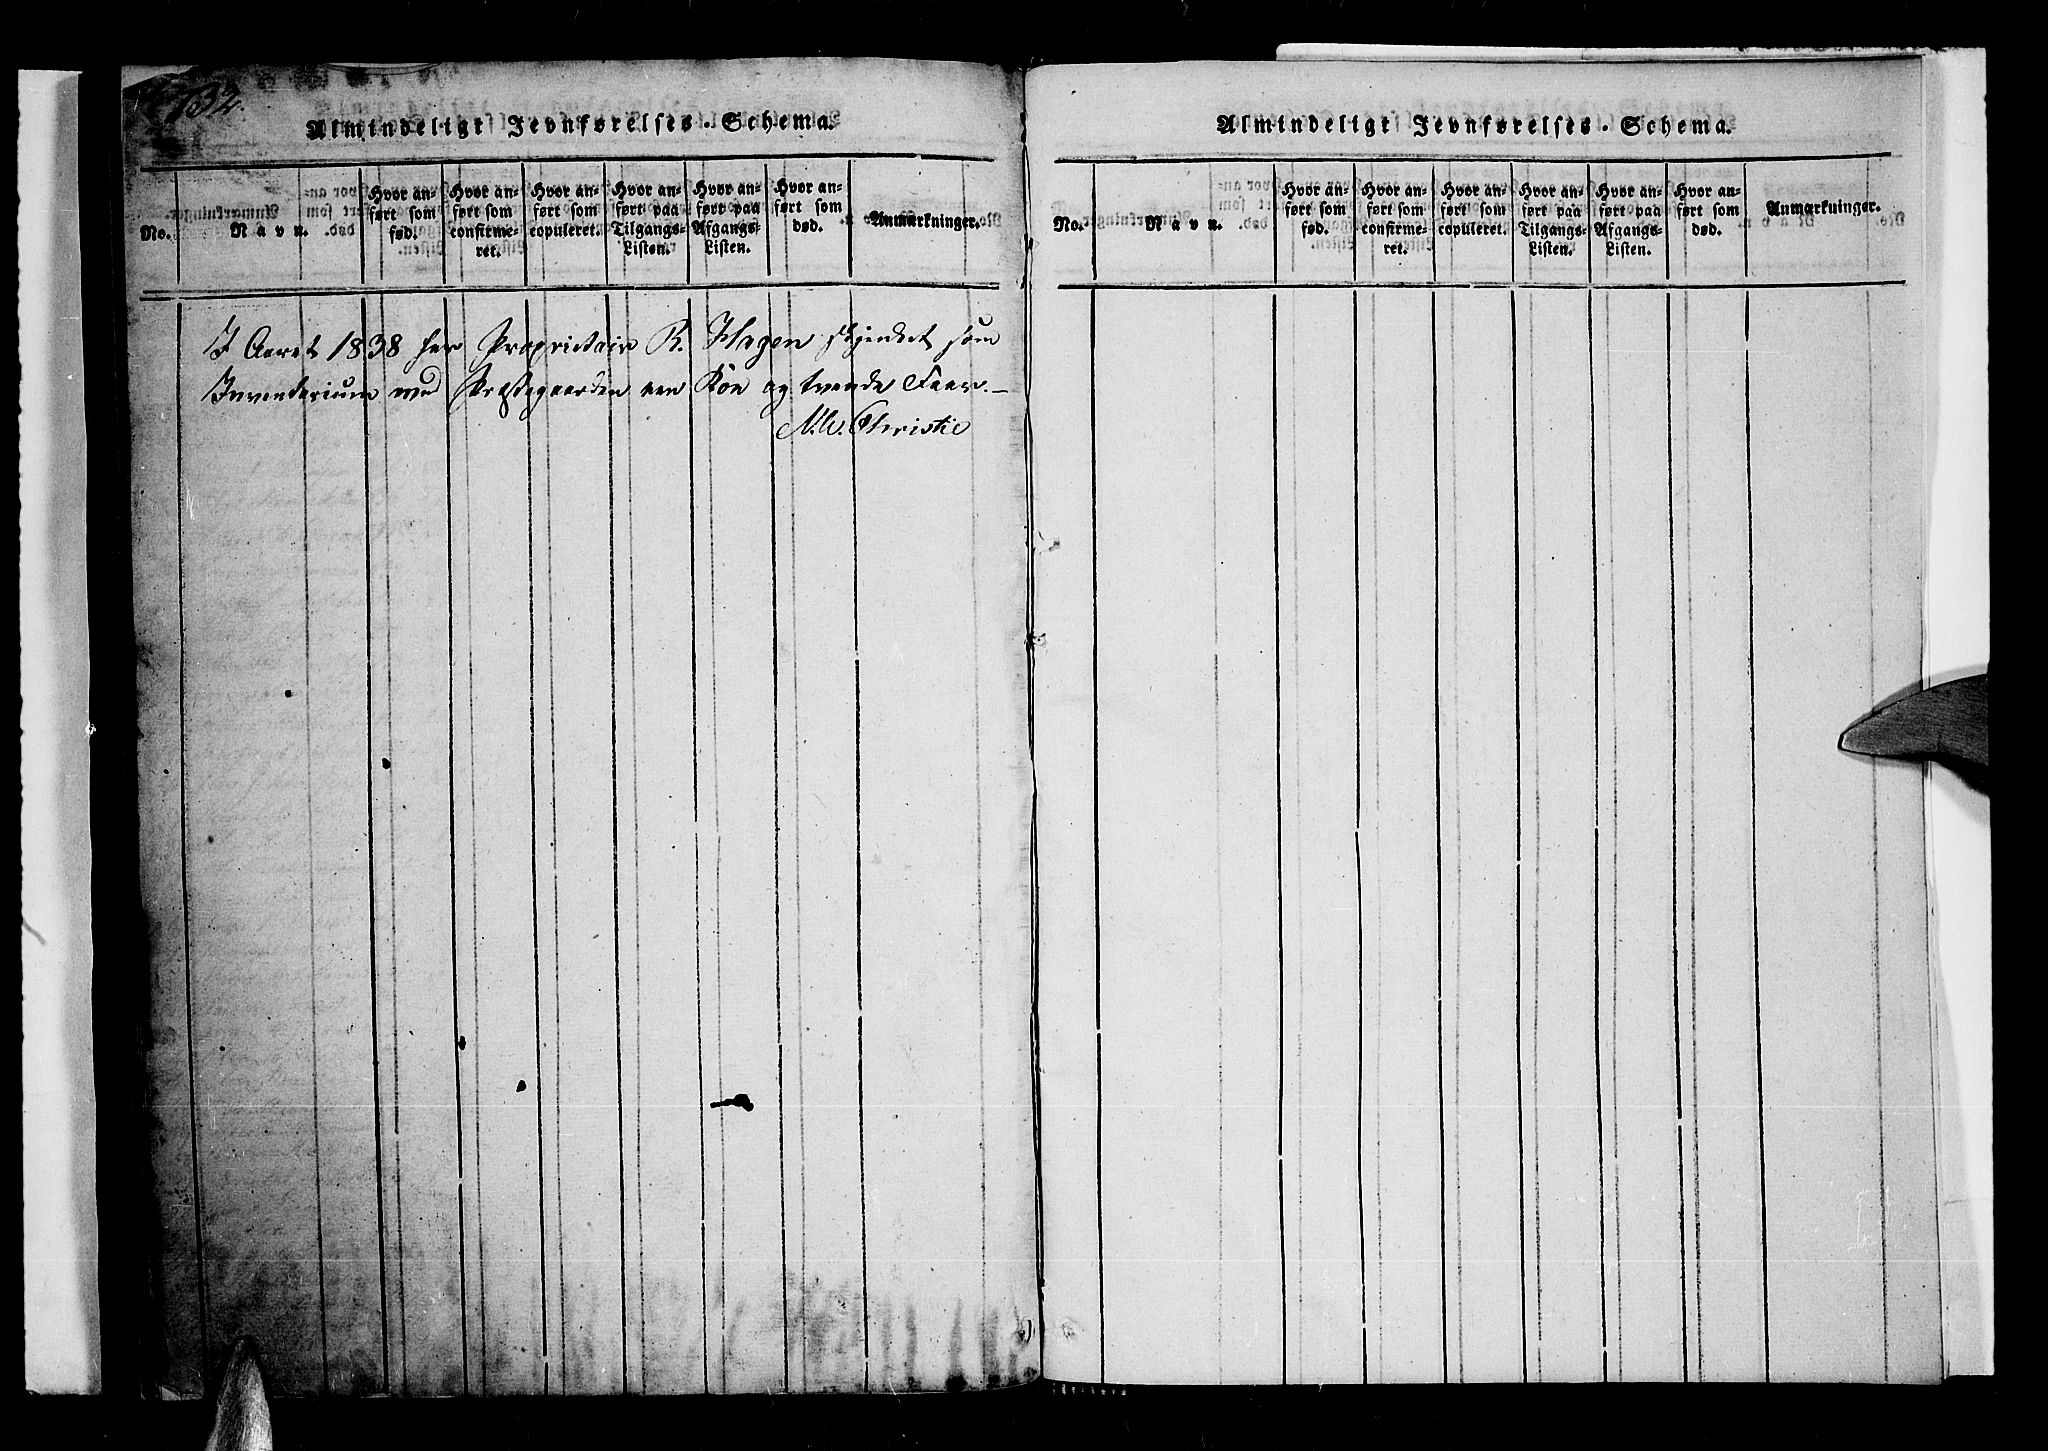 732.
Almindeligt Jevnførelses-Schema.
No.
Navn.
Hvor an-
ført som
fød.
Hvor an-
ført som
confirme-
ret.
Hvor an-
ført som
copuleret.
Hvor an-
ført paa
Tilgangs-
Listen.
Hvor an-
ført paa
Afgangs-
Listen.
Hvor an-
ført som
død.
Anmærkninger.
I Aaret 1838 har Proprietair R. Hagen skjenket som
Inventarium ved Præstegaarden een Koe og tvende Faar.—
M.W. Christie
Almindeligt Jevnførelses-Schema.
No.
Navn.
Hvor an-
ført som
fød.
Hvor an-
ført som
confirme-
ret.
Hvor an-
ført som
copuleret.
Hvor an-
ført paa
Tilgangs-
Listen.
Hvor an-
ført paa
Afgangs-
Listen.
Hvor an-
ført som
død.
Anmærkninger.